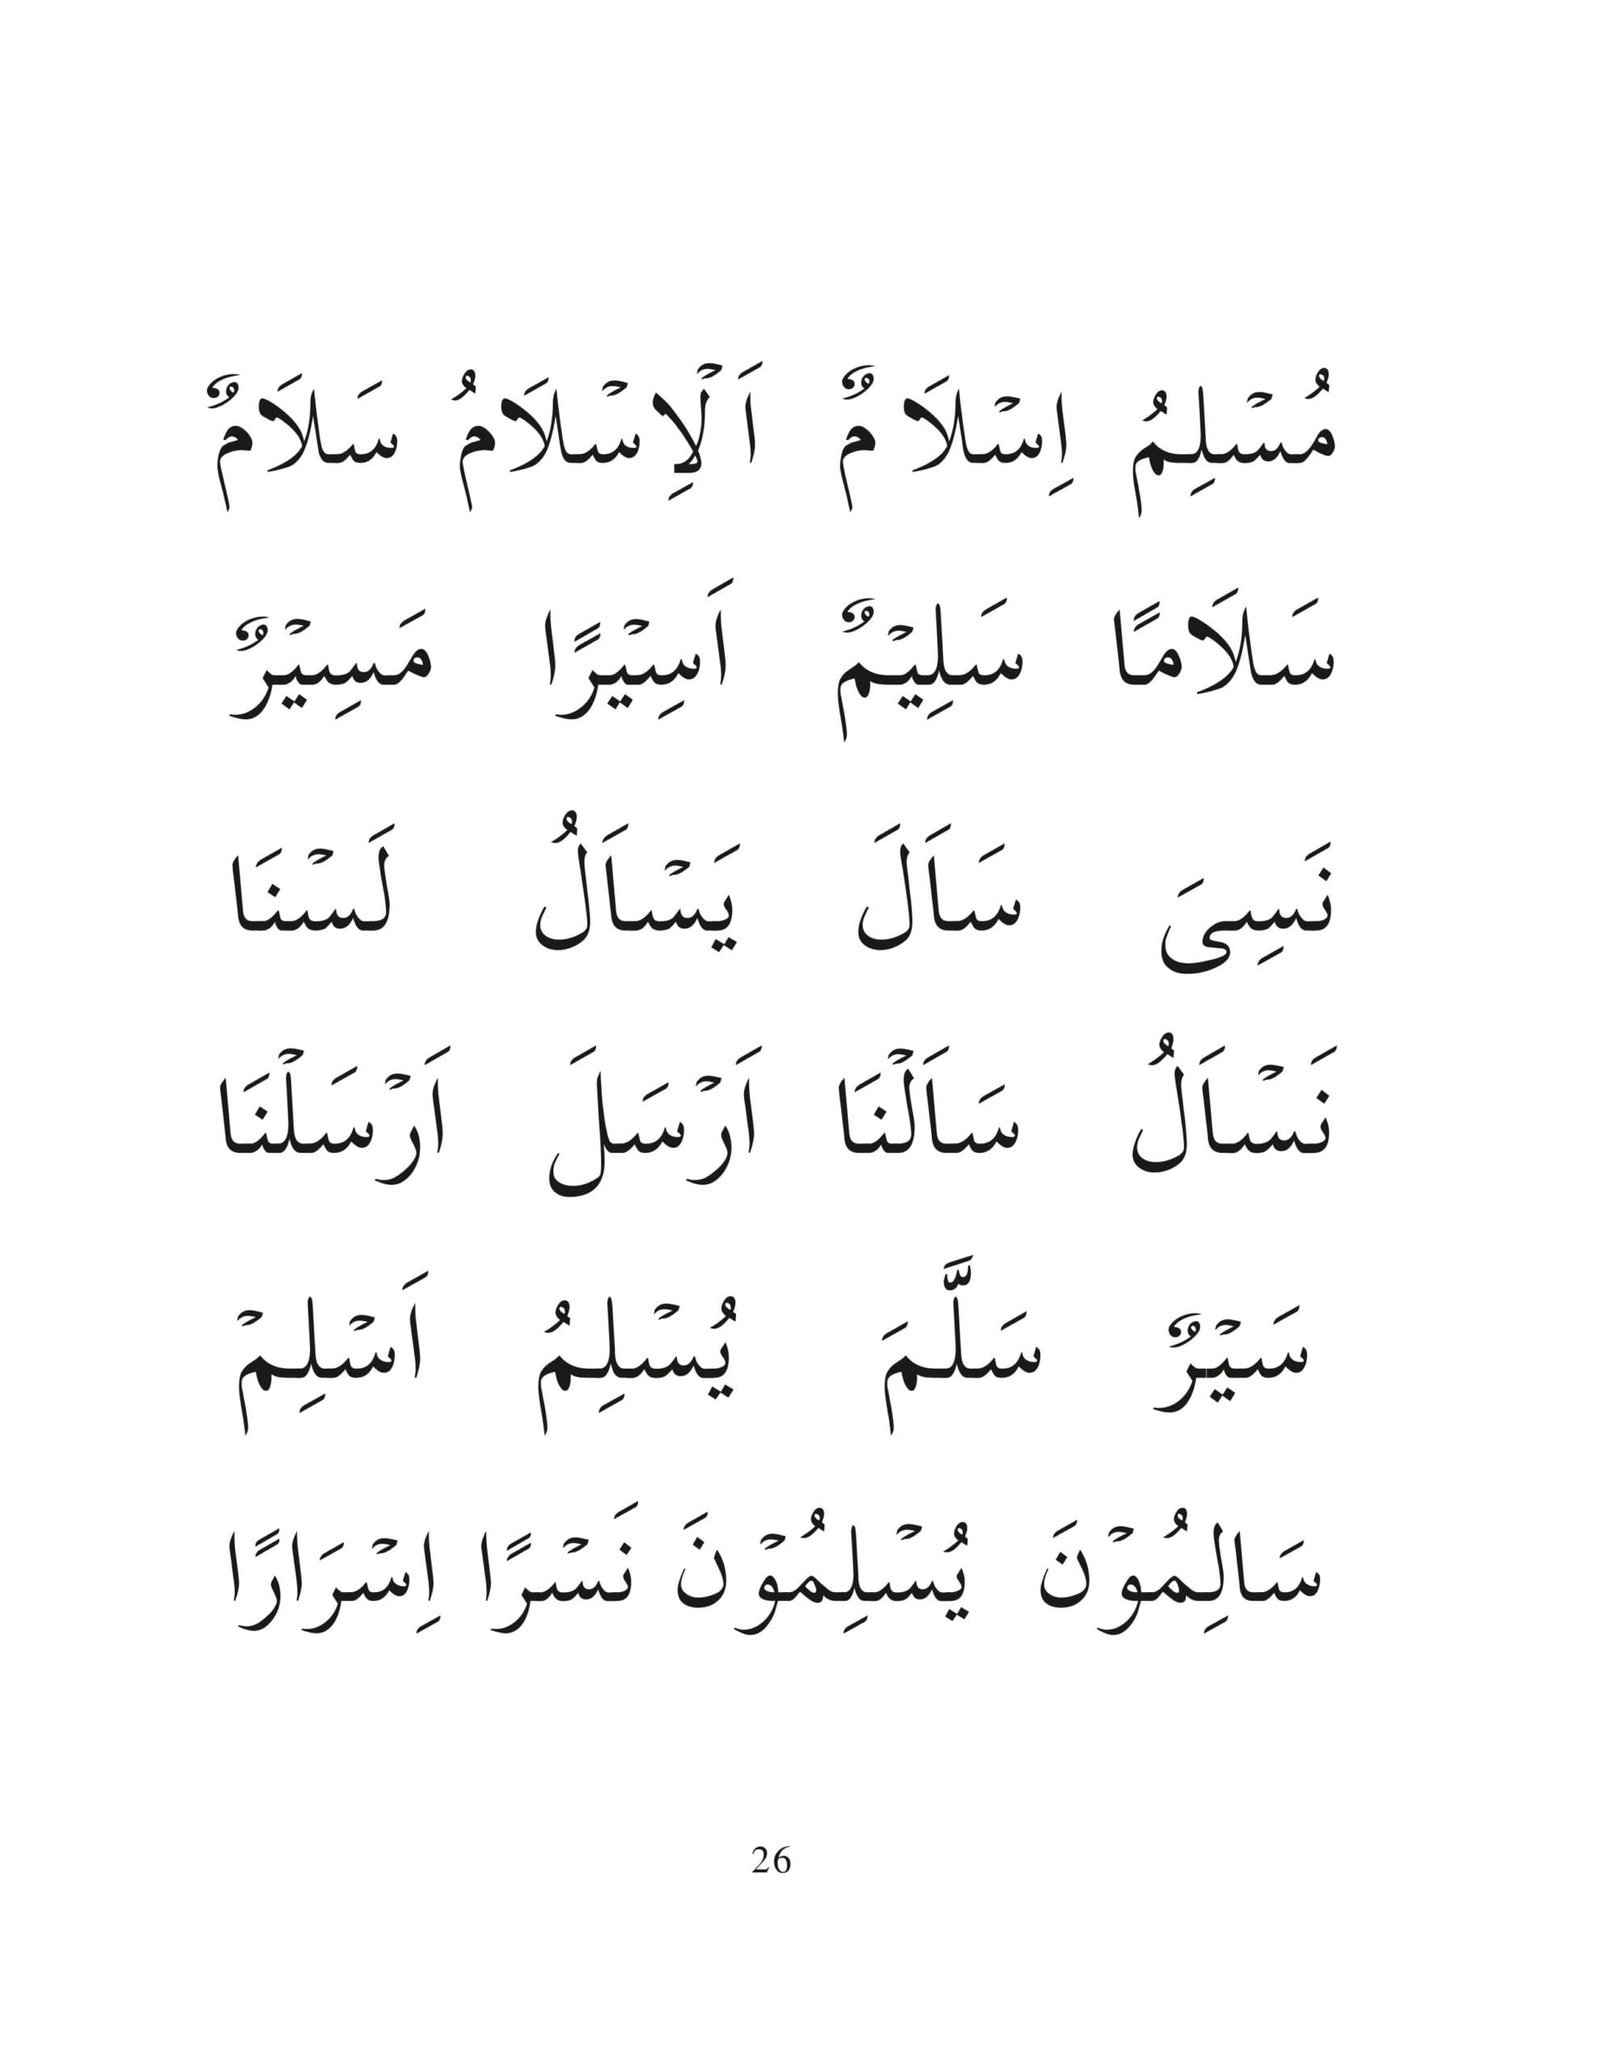 مُسْلِمُ اِسْلَامٌ اَلْاِسْلَامُ سَلَامٌ
سَلَامًا سَلِيْمٌ اَسِيْرًا مَسِيْرٌ
نَسِىَ سَاَلَ يَسْاَلُ لَسْنَا
نَسْاَلُ سَاَلْنَا اَرْسَلَ اَرْسَلْنَا
سَيْرٌ سَلَّمَ يُسْلِمُ اَسْلِمْ
سَالِمُوْنَ يُسْلِمُوْنَ نَسْرًا اِسْرَارًا
26